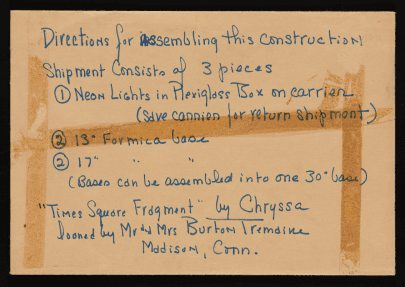 Directions for Assembling this construction
Shipment Consists of 3 pieces
① Neon Lights in Plexiglass Box on carrier
(save carrier for return shipment)
② 13" Formica base
② 17" " "
(Bases can be assembled into one 30" base)
"Times Square Fragment" by Chryssa
loaned by Mr & Mrs Burton Tremaine
Madison, Conn.